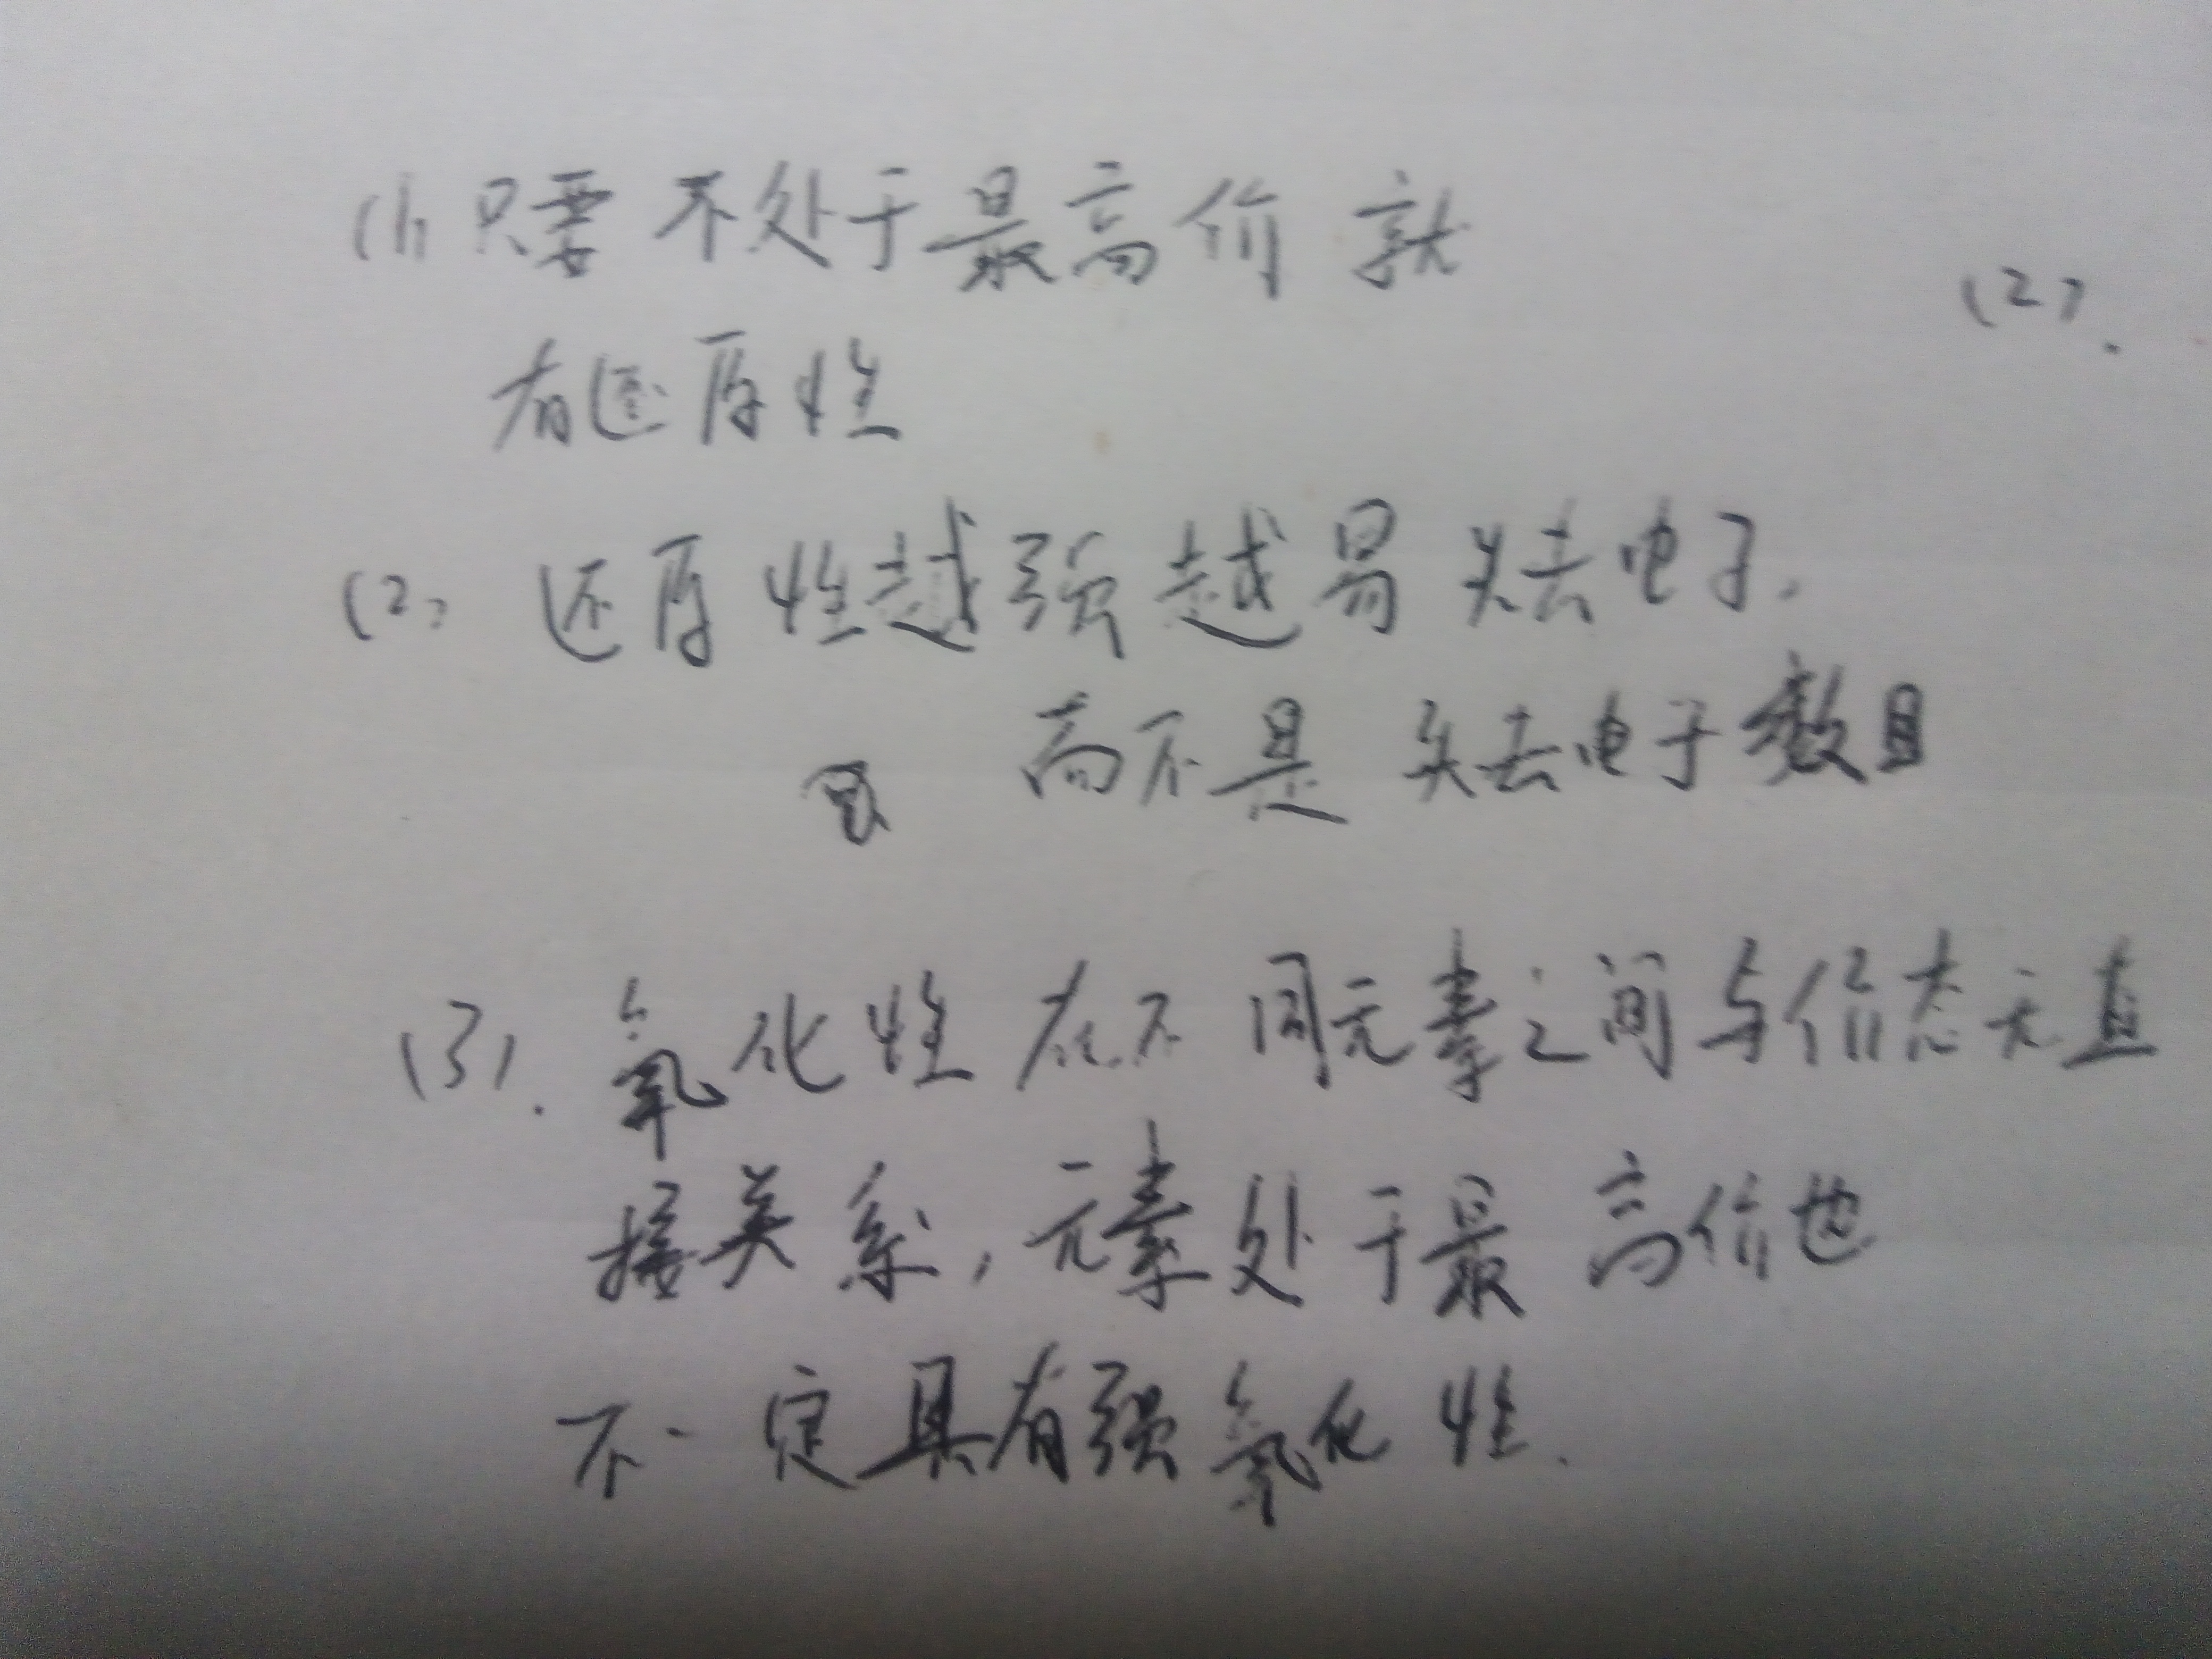 (1) 只要不处于最高价就
(2).
有还原性
(2) 还原性越强越易失去电子,
而不是失去电子数目
(3). 氧化性在不同元素之间与价态无直
接关系,元素处于最高价也
不一定具有强氧化性.